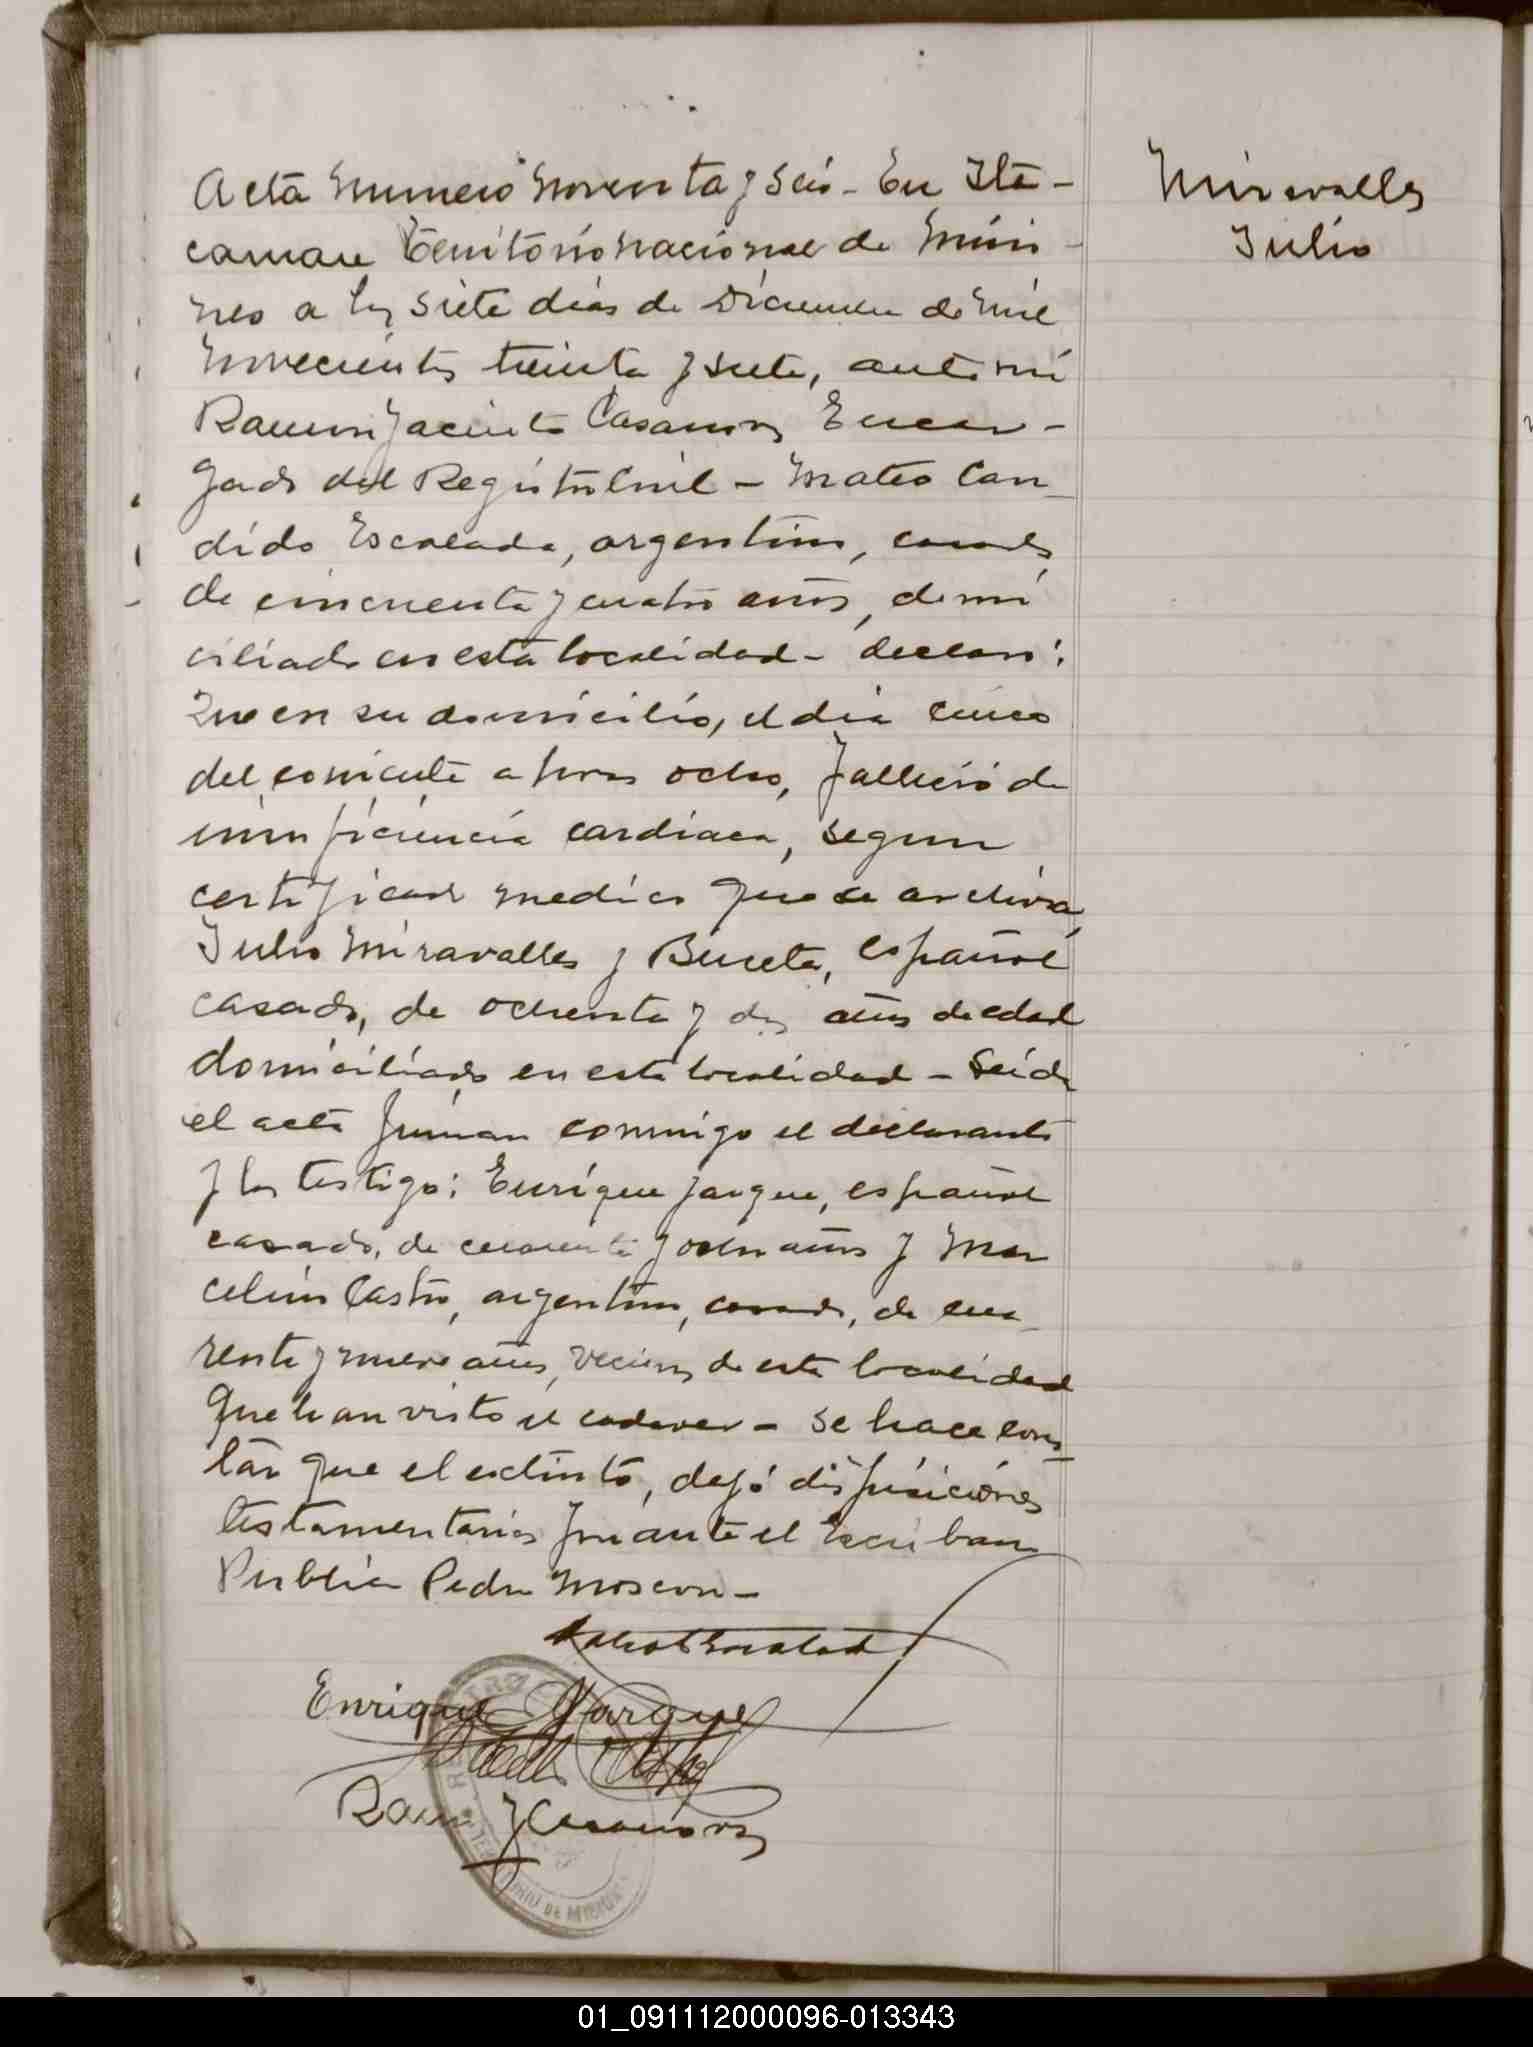 Acta numero noventa y seis - En Ita-
caruare Territorio nacional de Misio-
nes a los siete dias de Diciembre de mil
novecientos treinta y siete, ante mi
Ramon Jacinto Casanova Encar-
gado del Registro Civil - Mateo Can-
dido Escalada, argentino, casado,
de cincuenta y cuatro años, domi
ciliado en esta localidad - declaró:
Que en su domicilio, el dia cinco
del corriente a horas ocho, falleció de
insuficiencia cardiaca, segun
certificado medico que se archiva,
Julio Miravalles y Buceta, español
casado, de ochenta y dos años de edad
domiciliado en esta localidad - Leida
el acta firman conmigo el declarante
y los testigo: Enrique Jarque, español
casado, de cuarenta y ocho años y Mar
celino Castro, argentino, casado, de cua
renta y nueve años, vecinos de esta localidad
que han visto el cadaver - Se hace cons-
tar que el extinto, dejó disposiciones
testamentarias por ante el Escribano
Publico Pedro Moscon -
Enrique Jarque
Ramon J Casanova
Miravalles
Julio
DE MISIONES
01_091112000096-013343